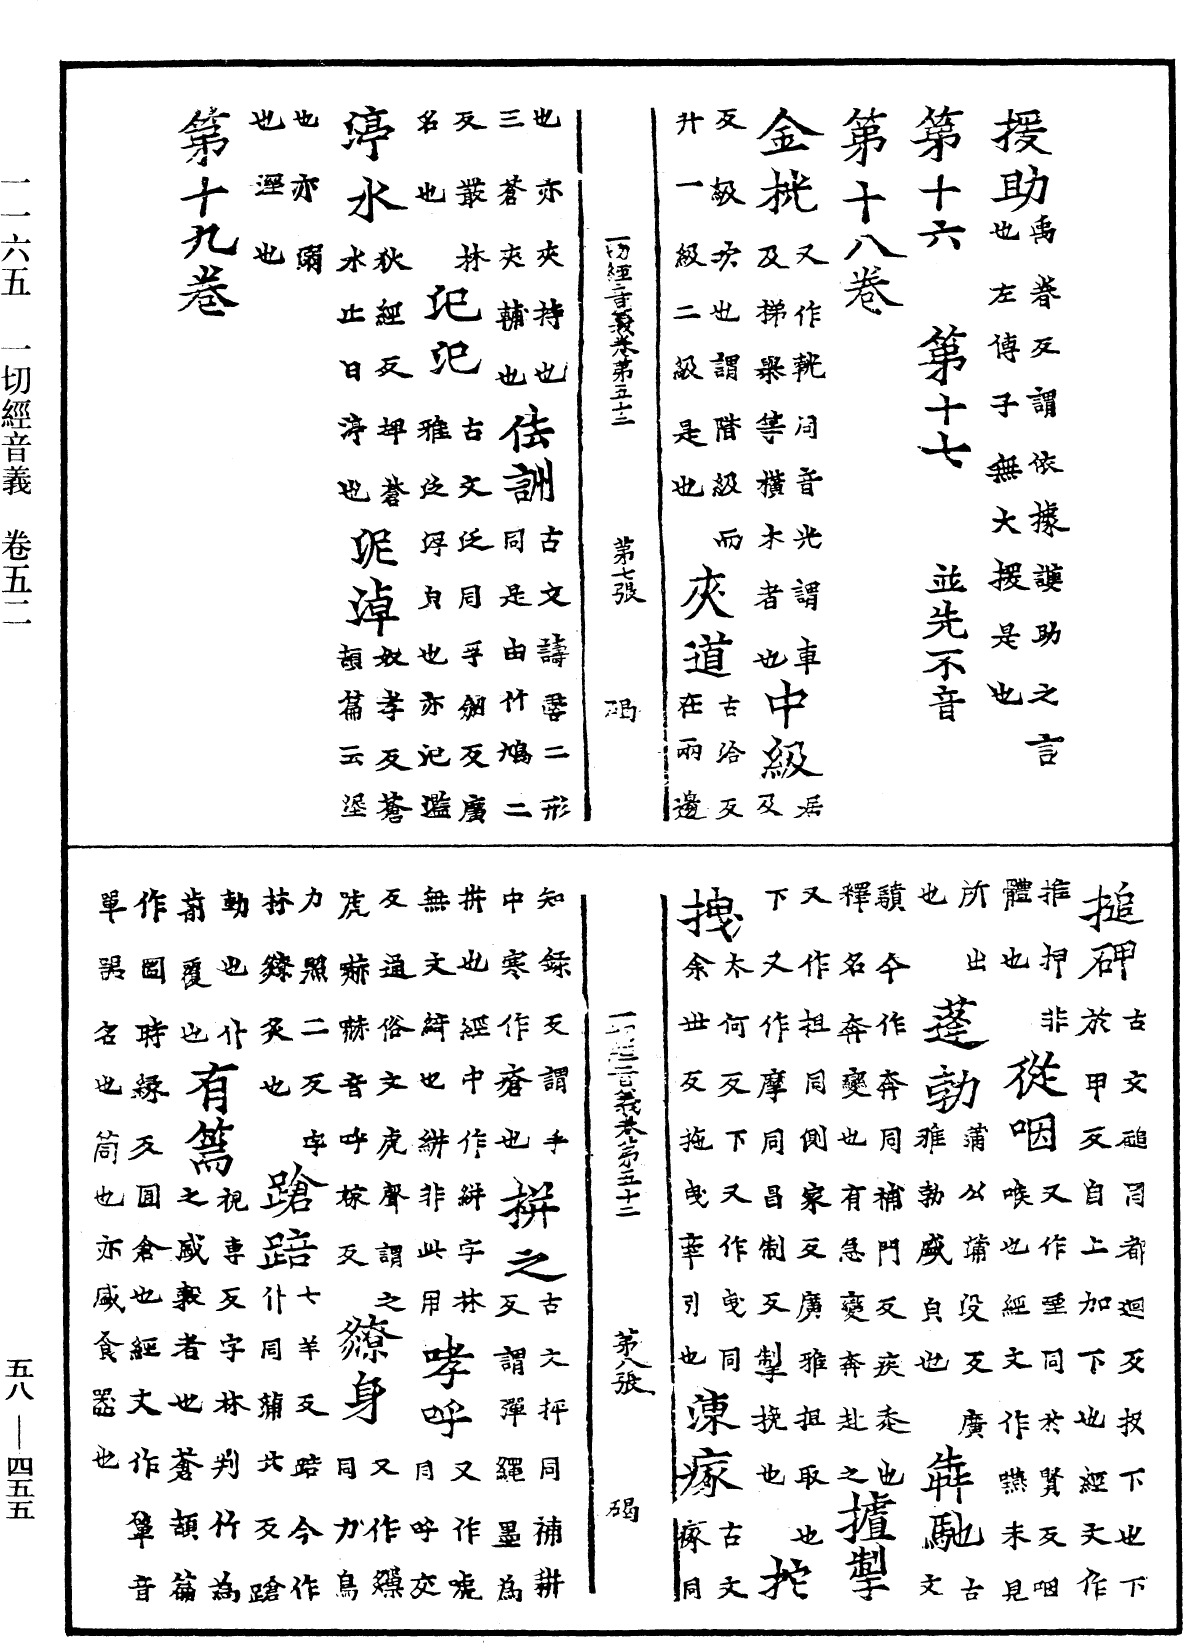 援助禹眷反謂依據護助之言
也左傳子無大援是也
第十六　第十七　並先不音
第十八卷
金桄又作軦同音光謂車
及梯舉等橫木者也中級居及
反級次也謂階級而
升一級二級是也夾道古洽反
在兩邊
一切經音義卷第五十二　第七張　碣
也亦夾持也
三蒼夾輔也㳒訓古文譸𧭈二形
同是由竹鳩二
反叢林
名也氾氾古文泛同孚劒反廣
雅泛浮皃也亦氾濫
停水狄經反埤蒼
水止曰渟也泥淖奴孝反蒼
頡篇云埿
也亦溺
也溼也
第十九卷
搥砰古文磓同都迴反投下也下
於甲反自上加下也經文作
搉押非
體也從咽又作𦜅同於賢反咽
喉也經文作嚥未見
所出
也蓬勃蒲公蒲沒反廣
雅勃盛皃也犇馳古文
驞今作奔同補門反疾走也
釋名奔變也有急變奔赴之攎掣
又作抯同側家反廣雅抯取也
下又作摩同昌制反掣挽也拕
太何反下又作曳同
拽余世反拖曳牽引也涷瘃古文
瘃同
一切經音義卷第五十二　第八張　碣
知錄反謂手
中寒作瘡也拼之古文抨同補耕
反謂彈繩墨為
拼也經中作絣字林
無文綺也絣非此用哮呼又作唬
同呼交
反通俗文虎聲謂之
虎赫赫音呼嫁反獠身又作燎
同力鳥
力照二反字
林獠炙也蹌踣七羊反踣今作
仆同蒲北反蹌
動也仆
前覆也有篅視專反字林判竹為
之盛穀者也蒼頡篇
作圌時緣反圓倉也經文作簞音
單誤名也筒也亦盛食器也
一一六五　一切經音義　卷五二
五八—四五五